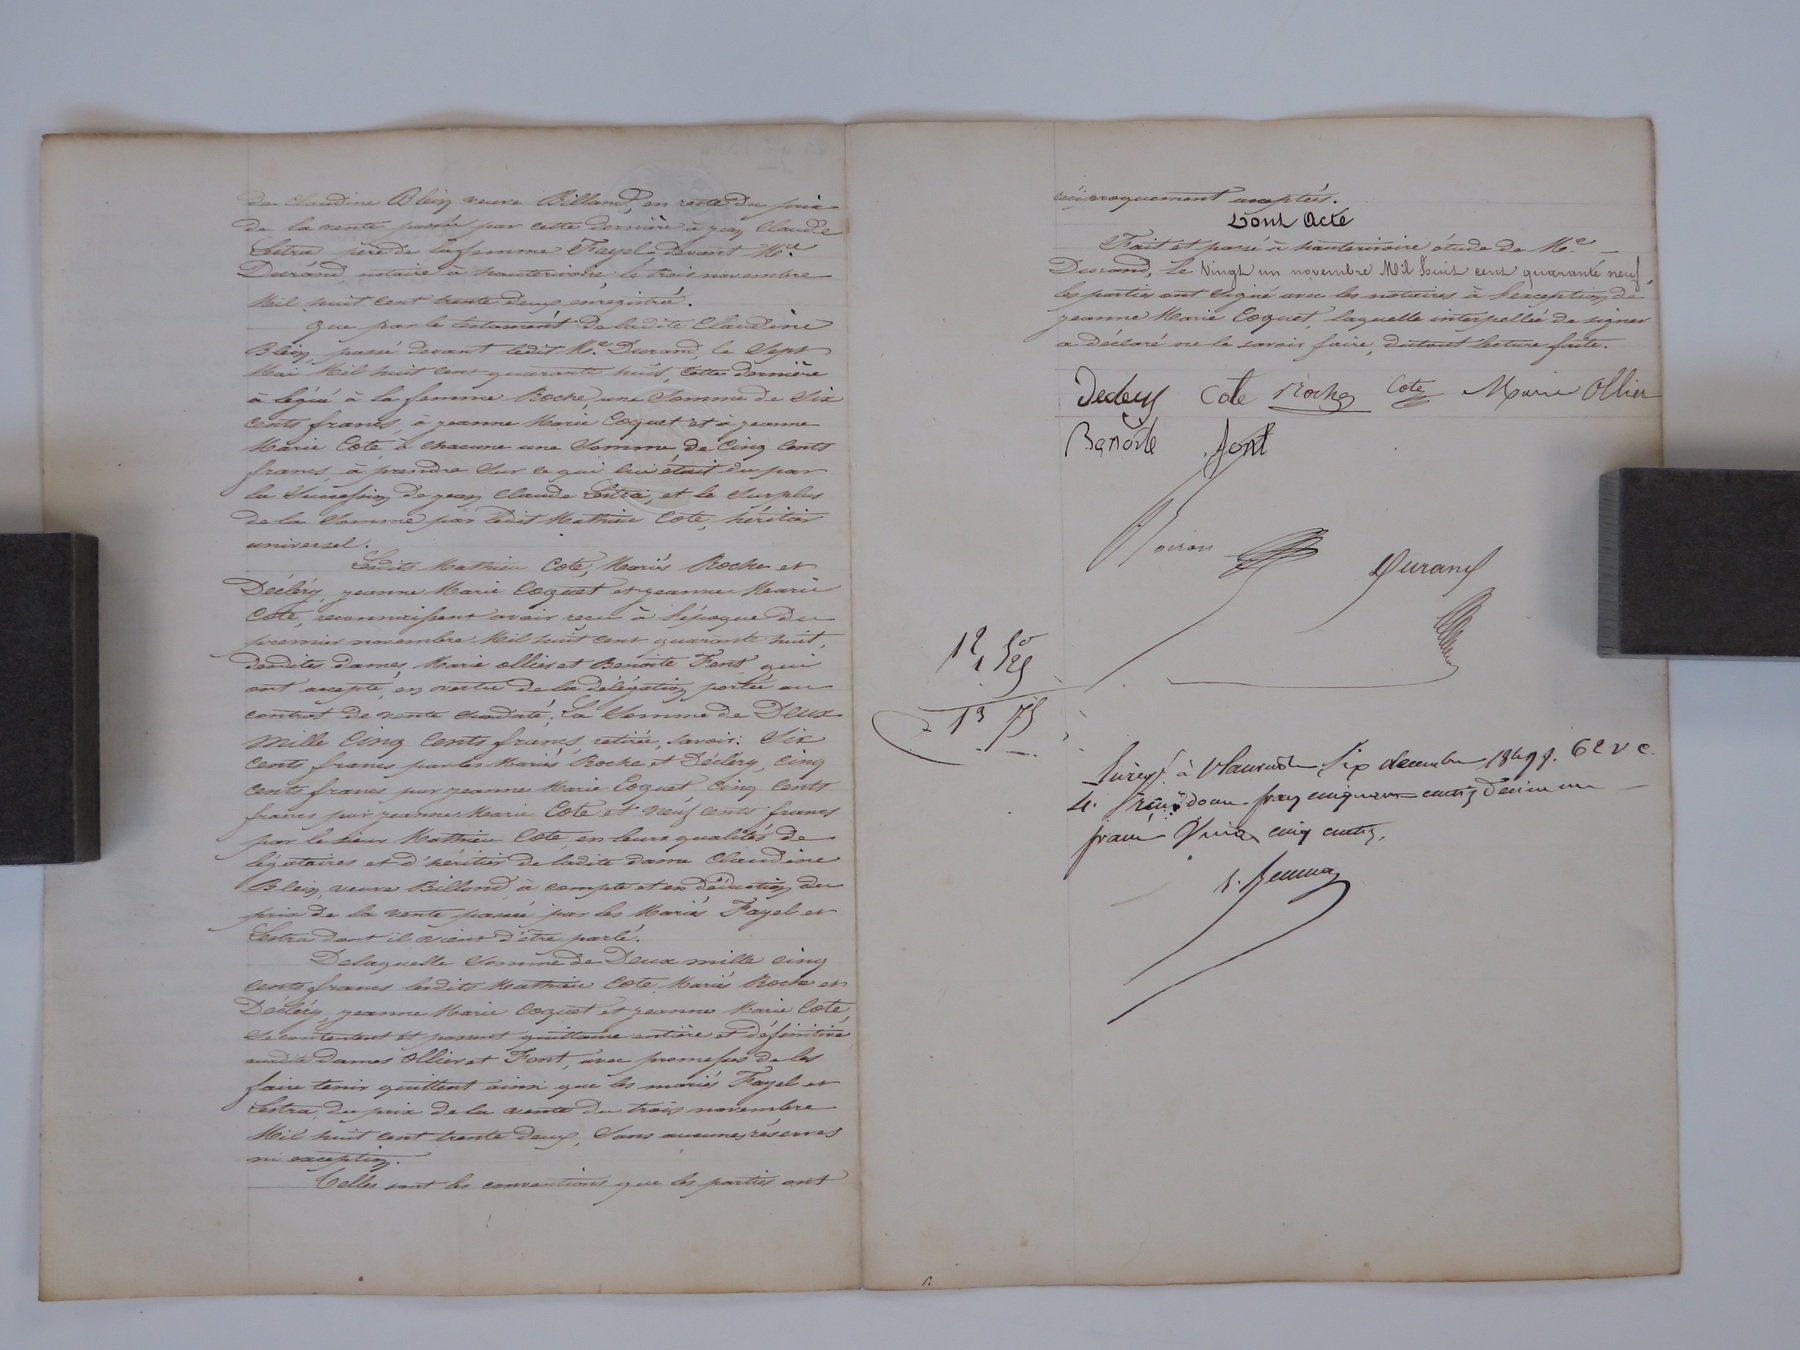 de Claudine Blein veuve Billand, en reste du prix
de la vente passée par cette dernière à jean Claude
Lestra père de la femme Fayel devant Me.
Durand notaire à hauterivoire, le trois novembre
Mil huit cent trente deux, enregistrée.
que par le testament de ladite Claudine
Blein, passé devant ledit Me. Durand, le Sept
Mai Mil huit cent quarante huit, Cette dernière
à légué à la femme Roche, une Somme de Six
cents francs, à jeanne Marie Coquet et à jeanne
Marie Cote, à chacune une Somme de Cinq Cents
francs, à prendre Sur ce qui lui était du par
la Succession de jean Claude Lestra, et le Surplus
de la Somme par ledit Mathieu Cote, héritier
universel.
Lesdits Mathieu Cote, Mariés Roche et
Décléry, jeanne Marie Coquet et jeanne Marie
Cote, reconnaissent avoir reçu à l'époque du
premier novembre Mil huit cent quarante huit,
desdites dames Marie Ollier et Benoite Font, qui
ont accepté, en vertu de la délégation portée au
contrat de vente susdaté, La Somme de Deux
Mille Cinq Cents francs, retirée, Savoir: Six
Cents francs par les Mariés Roche et Décléry, Cinq
Cents francs par jeanne Marie Coquet Cinq Cents
francs par jeanne Marie Cote et neuf cents francs
par le Sieur Mathieu Cote, en leurs qualités de
légataires et d'héritier de ladite dame Claudine
Blein, veuve Billand, à compte et en déduction du
prix de la vente passée par les Mariés Fayel et
Lestra dont il vient d'être parlé.
De laquelle Somme de Deux mille Cinq
Cents francs lesdits Mathieu Cote, Mariés Roche et
Décléry, jeanne Marie Coquet et jeanne Marie Cote,
Se contentent et passent quittance entière et définitive
auxdites dames Ollier et Font, avec promesses de les
faire tenir quittent ainsi que les mariés Fayel et
Lestra, du prix de la vente du trois novembre
Mil huit cent trente deux, Sans aucunes réserves
ni exception.
Telles sont les conventions que les parties ont
réciproquement acceptées.
Dont Acte
Fait et passé à hauterivoire étude de Me.
Durand, Le Vingt un novembre Mil huit cent quarante neuf,
les parties ont Signé avec les notaires à l'exception de
jeanne Marie Coquet, laquelle interpellée de signer
a déclaré ne le savoir faire, dutout lecture faite.
Declery Cote Roche Cote Marie Ollier
Benoite font
Durand
12 50
1 25
13 75
à St Laurent le Six decembre 1849 f. 62 v c.
4. Reçu douze francs cinquante centimes Decime un
franc Vingt cinq centimes.